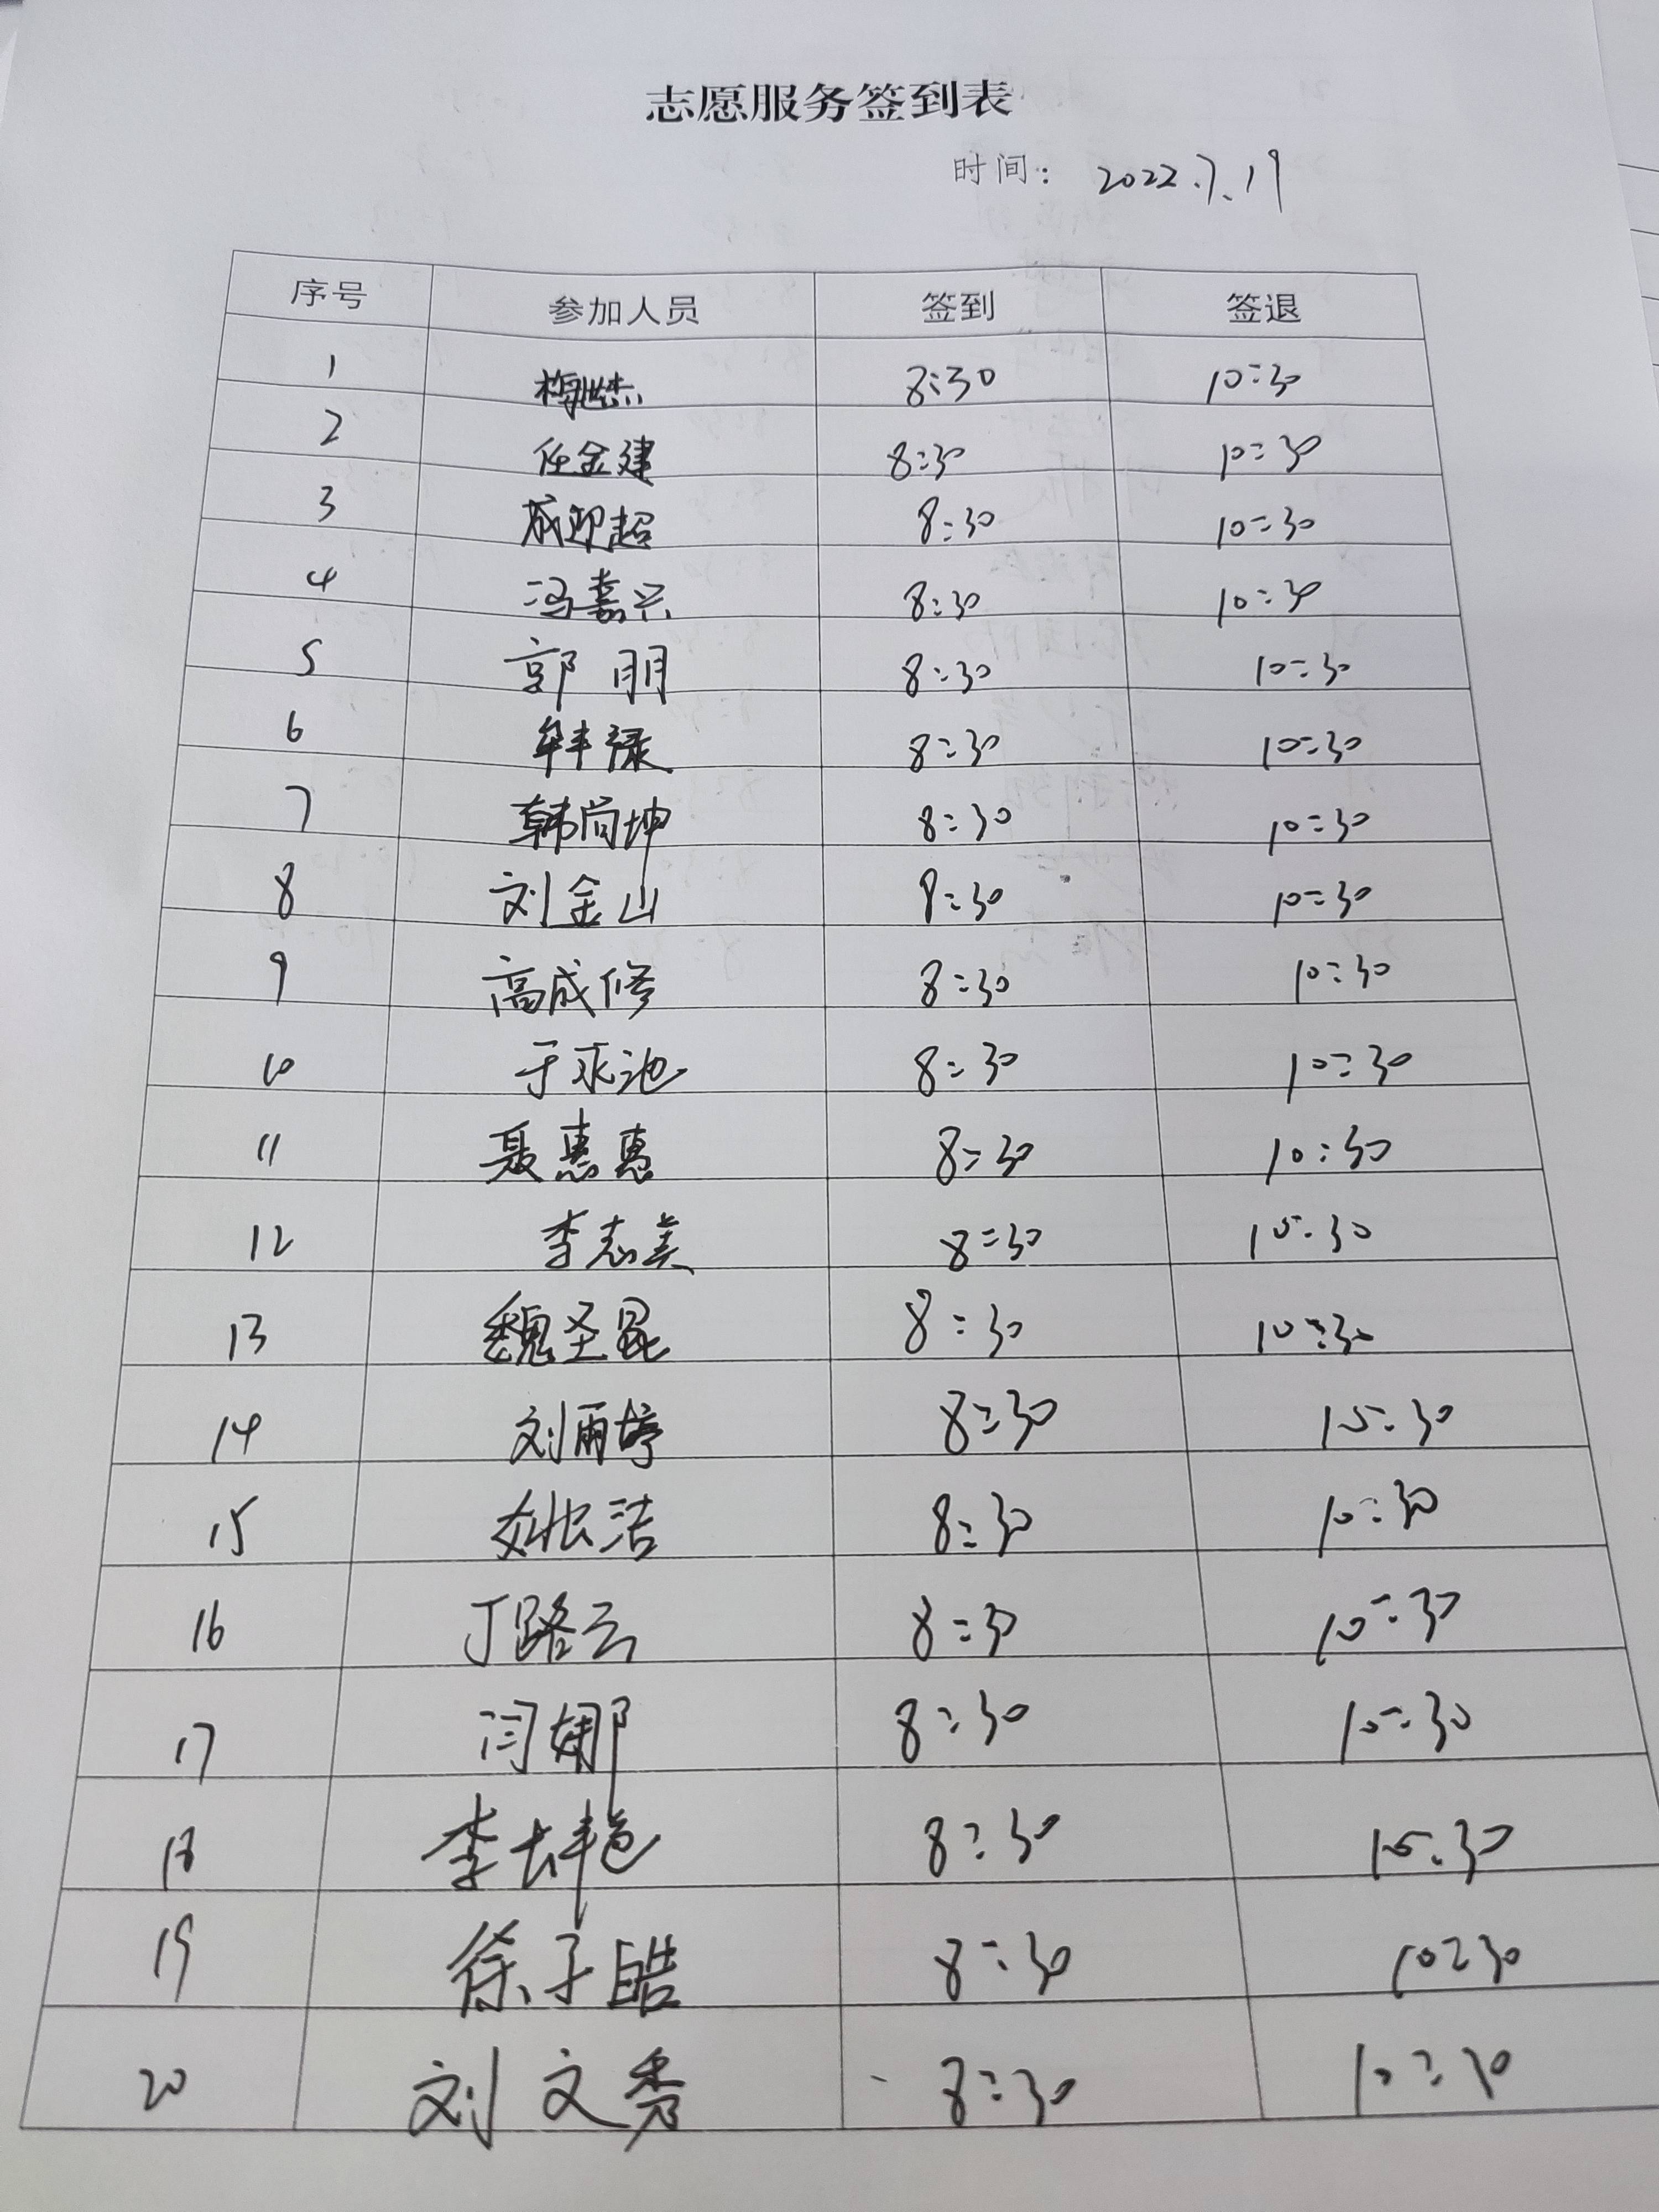 志愿服务签到表
时间: 2022.7.19
序号 参加人员 签到 签退
1 梅继杰 8:30 10:30
2 任金建 8:30 10:30
3 成迎超 8:30 10:30
4 冯嘉兴 8:30 10:30
5 郭朋 8:30 10:30
6 牟丰禄 8:30 10:30
7 韩尚坤 8:30 10:30
8 刘金山 8:30 10:30
9 高成修 8:30 10:30
10 于永池 8:30 10:30
11 聂惠惠 8:30 10:30
12 李志美 8:30 10:30
13 魏圣昆 8:30 10:30
14 刘雨婷 8:30 10:30
15 姚洁 8:30 10:30
16 丁路云 8:30 10:30
17 闫娜 8:30 10:30
18 李艳 8:30 10:30
19 徐子皓 8:30 10:30
20 刘文秀 8:30 10:30